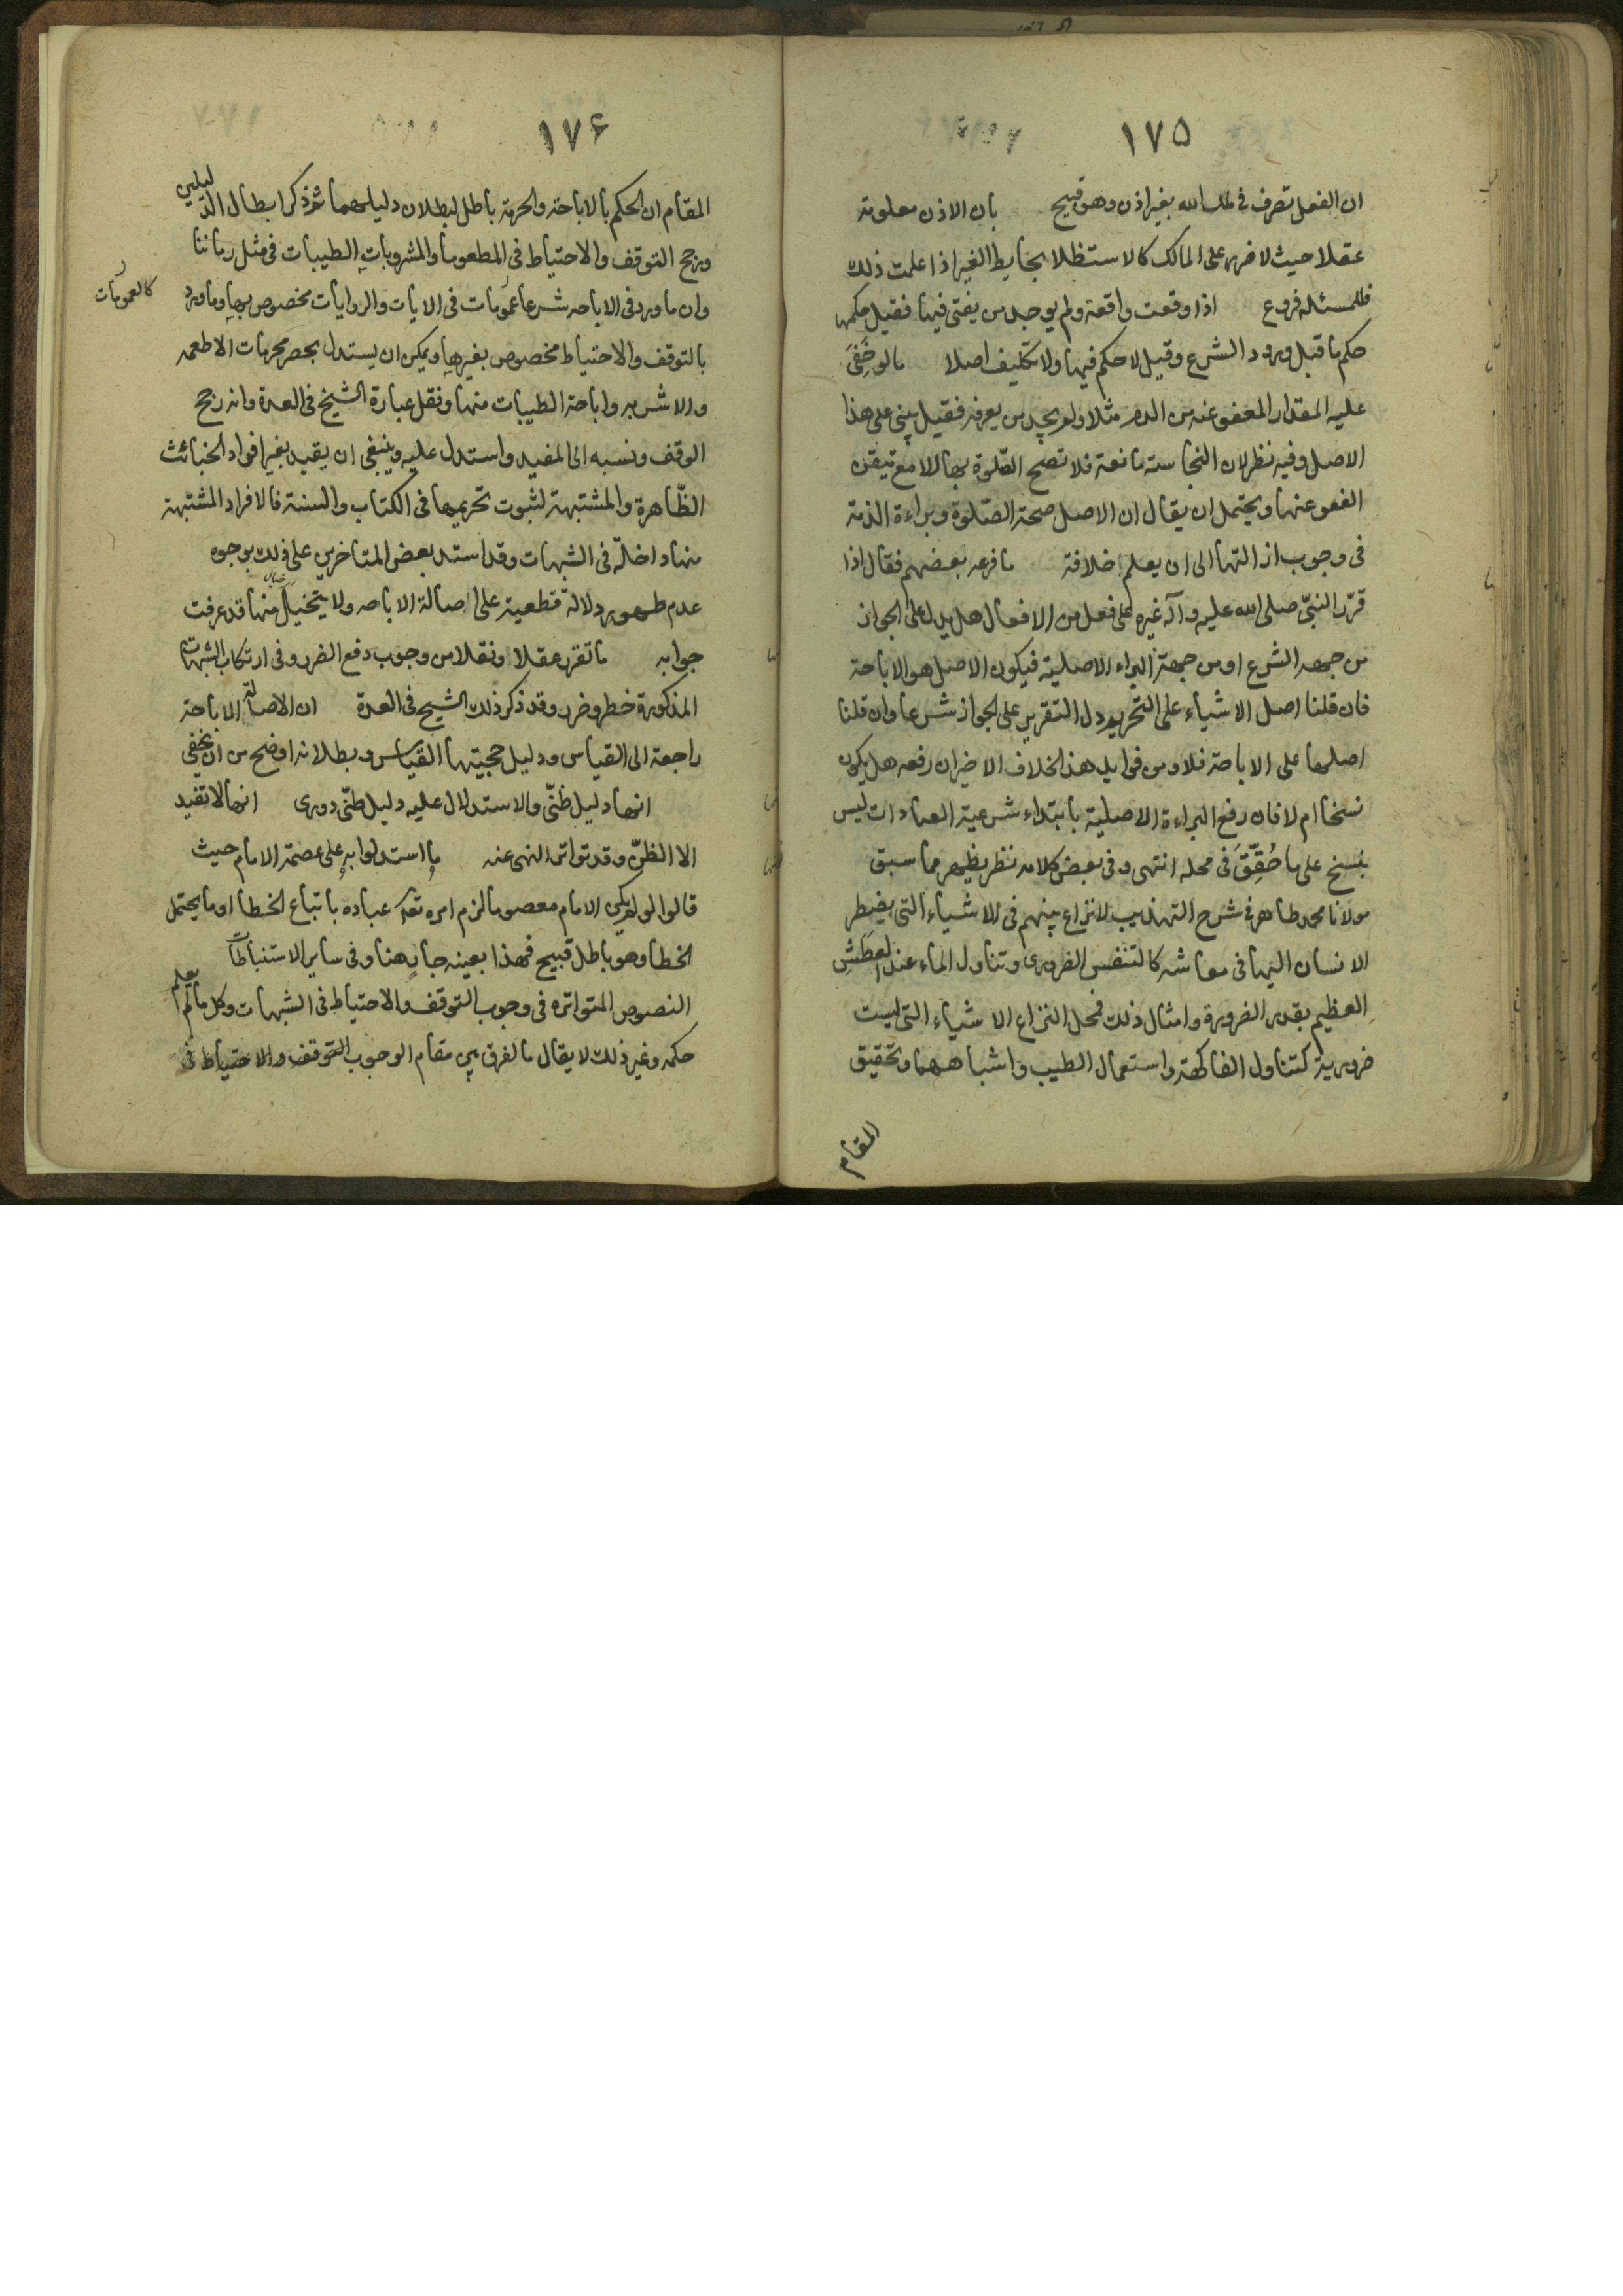 ١٧٥
ان الفعل تصرف في ملك الله بغير اذن وهو قبيح بان الاذن معلومة
عقلا حيث لا ضرر على المالك كالاستظلا بحايط الغير اذا علمت ذلك
فللمسئله فروع اذا وقعت واقعة ولم يوجد من يفتى فيها فقيل حكمها
حكم ما قبل ورود الشرع وقيل لا حكم فيها ولا تكليف اصلا ما لو خَفِىَ
عليه المقدار المعفو عنه من الدم مثلا ولم يجد من يعرفه فقيل يبنى على هذا
الاصل وفيه نظر لان النجاسته مانعة فلا تصح الصّلوة بها الا مع تيقن
العفو عنها ويحتمل ان يقال ان الاصل صحة الصّلوة وبراءة الذمة
فى وجوب ازالتها الى ان يعلم خلافة ما فرعه بعضهم فقال اذا
قرّر النبىّ صلى الله عليه وآله غيره على فعل من الافعال هل يدل على الجواز
من جهه الشرع او من جهة البراء الاصلية فيكون الاصل هو الاباحة
فان قلنا اصل الاشياء على التحريم دل التقرير على الجواز شرعا وان قلنا
اصلها على الاباحة فلا ومن فوايد هذ الخلاف الاخير ان رفعه هل يكون
نسخا ام لا فان رفع البراءة الاصلية بابتداء شرعية العبادات ليس
بنسخ على ما حُقِّقَ فى محله انتهى وفى بعض كلامه نظر يظهر مما سبق
مولانا محمد طاهر فى شرح التهذيب لا نزاع بينهم فى الاشياء التى يضطر
الانسان اليها فى معاشه كالتنفس الضرورى وتناول الماء عند العطَشِ
العظيم بقدر الضرورة وامثال ذلك فمحل النزاع الاشياء التى ليست
ضرورية كتناول الفاكهة واستعمال الطيب واشباههما وتحقيق
المقام
١٧۶
المقام ان الحكم بالاباحة والحرمة باطل لبطلان دليلهما ثم ذكر ابطال الدليلين
ورجح التوقف والاحتياط فى المطعومات والمشروبات الطيبات فى مثل زماننا
وان ما ورد فى الاباحه شرعا عمومات فى الايات والروايات مخصوص بها وما ورد
كالعمومات
بالتوقف والاحتياط مخصوص بغيرها ويمكن ان يستدل بحصر محرمات الاطعمه
والاشربه واباحة الطيبات منها ونقل عبارة الشيخ فى العدة وانه رجح
الوقف ونسبه الى المفيد واستدل عليه وينبغى ان يقيد بغير افراد الخبائث
الظّاهرة والمشتبهة لثبوت تحريمها فى الكتاب والسنة فالافراد المشتبهة
منها داخلّة فى الشبهات وقد استدل بعض المتاخرين على ذلك بوجوه
عدم ظهور دلالة قطعية على اصالة الاباحه ولا يتخيل منها قد عرفت
جوابه ما تقرر عقلا ونقلا من وجوب دفع الضرر وفى ارتكاب الشبهات
المذكورة خطر وضرر وقد ذكر ذلك الشيخ فى العدة ان الاصالة الاباحة
راجعة الى القياس ودليل حجيتها القياس وبطلانه اوضح من ان يخفى
انها دليل ظنّى والاستدلال عليه دليل ظنّى دورى انها لا تفيد
الا الظنّ وقد تواتر النهى عنه ما استدلوا به على عصمة الامام حيث
قالوا لو لم يكن الامام معصوما لزم امره تعالى عباده باتباع الخطا او ما يحتمل
الخطا وهو باطل قبيح فهذا بعينه جار هنا وفى ساير الاستنباطات
النصوص المتواتره فى وجوب التوقف والاحتياط فى الشبهات وكل ما لم يعلم
حكمه وغير ذلك لا يقال ما الفرق بين مقام الوجوب التوقف والاحتياط فى